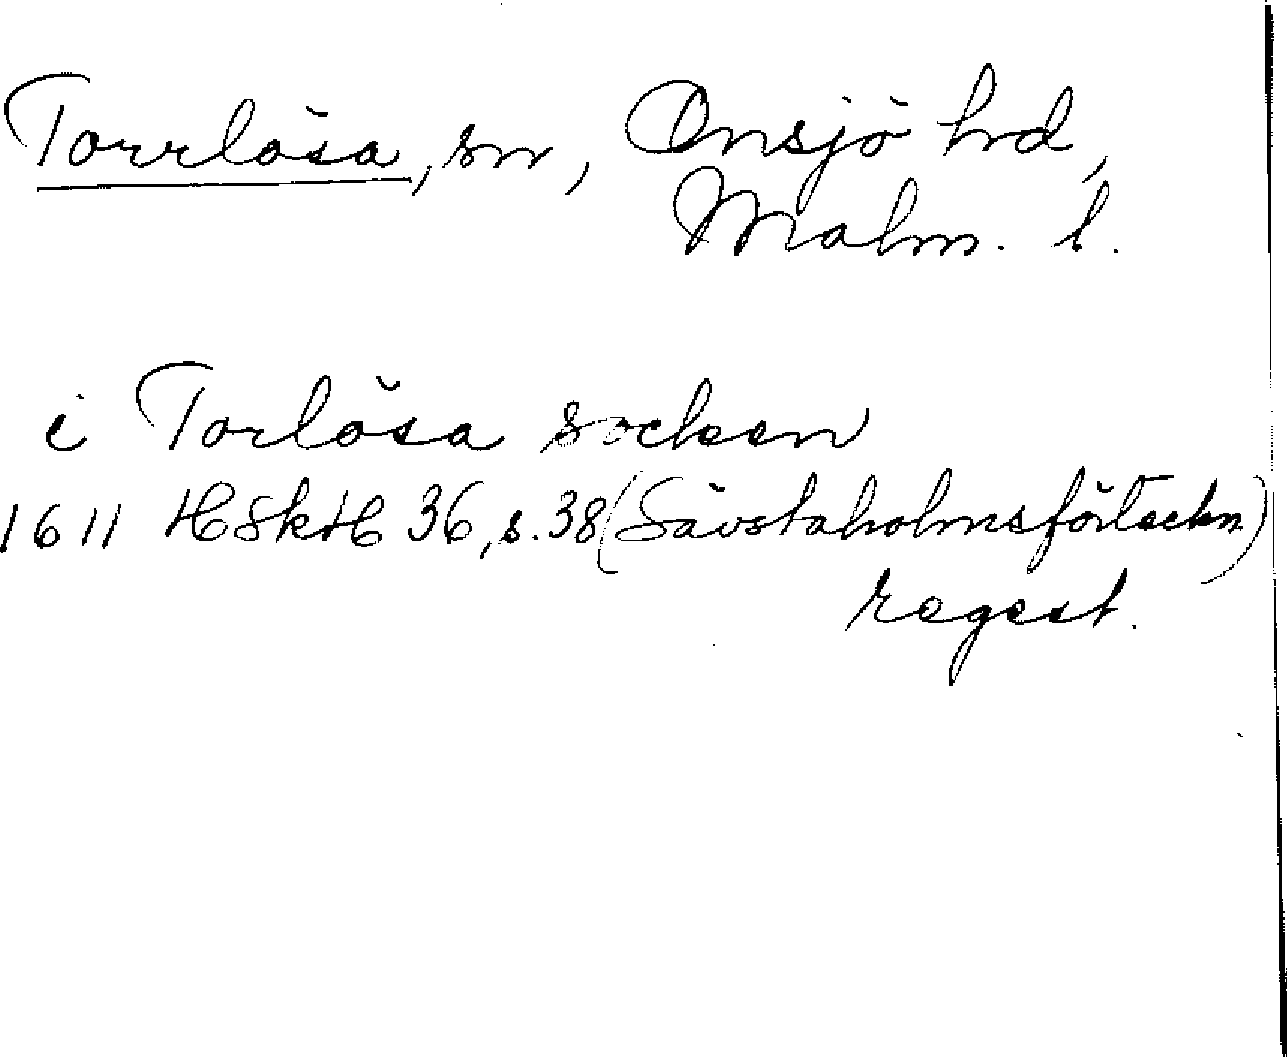 Torrlösa, sn, Onsjö hd,
Malm. l.
i Torlösa socken
1611 HSkH 36, s. 38 (Sävstaholmsförteckn)
regest.